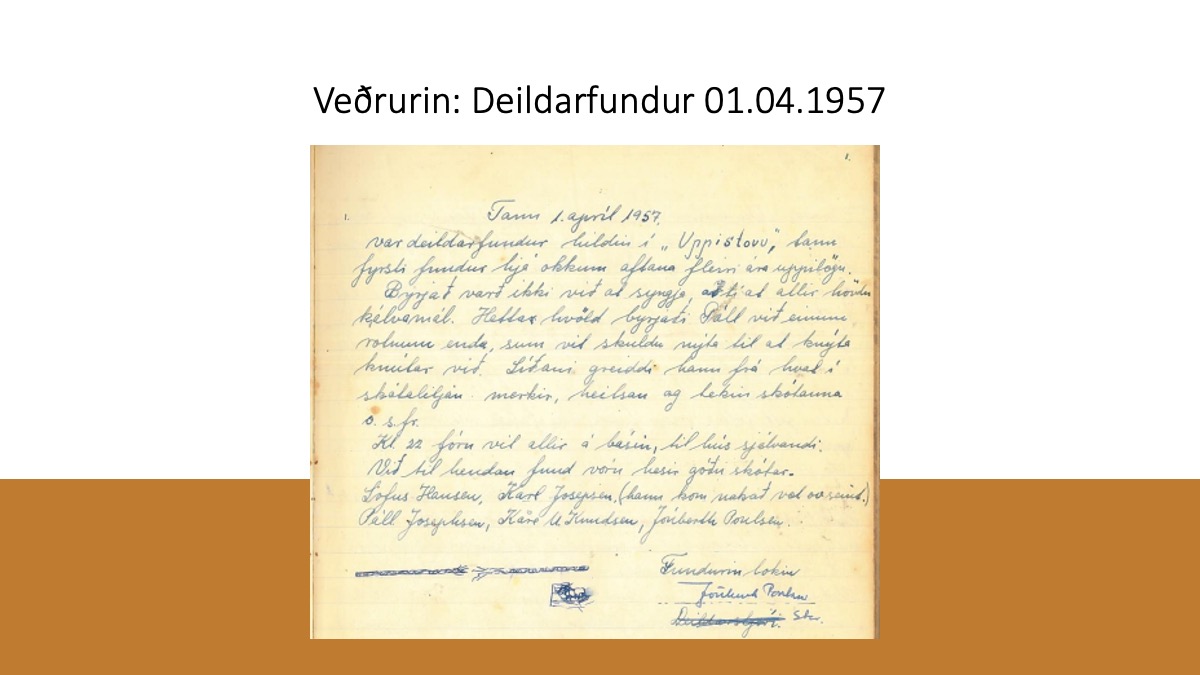 Veðrurin: Deildarfundur 01.04.1957
1.
1.
Tann 1. apríl 1957.
var deildarfundur hildin í „Uppistovu“, tann
fyrsti fundur hjá okkum aftaná fleiri ára uppilögu.
Byrjað varð ikki við at syngja, at allir høvdu
kálvamál. Hettar kvöld byrjaði Páll við einum
rotnum enda, sum vit skuldu nýta til at knýta
knútar við. Síðani greiddi hann frá hvat í
skátaliljan merkir, heilsan og tekin skótanna
o.s.fr.
Kl. 22 fóru vit allir á básin, til hús sjálvandi.
Við til hendan fund vóru hesir góðu skótar.
Lofus Hansen, Karl Josepsen, (hann kom nakað vel ov seint.)
Páll Josephsen, Kåre U Knudsen, Jóubert Poulsen.
Fundurin lokin
Poulsen